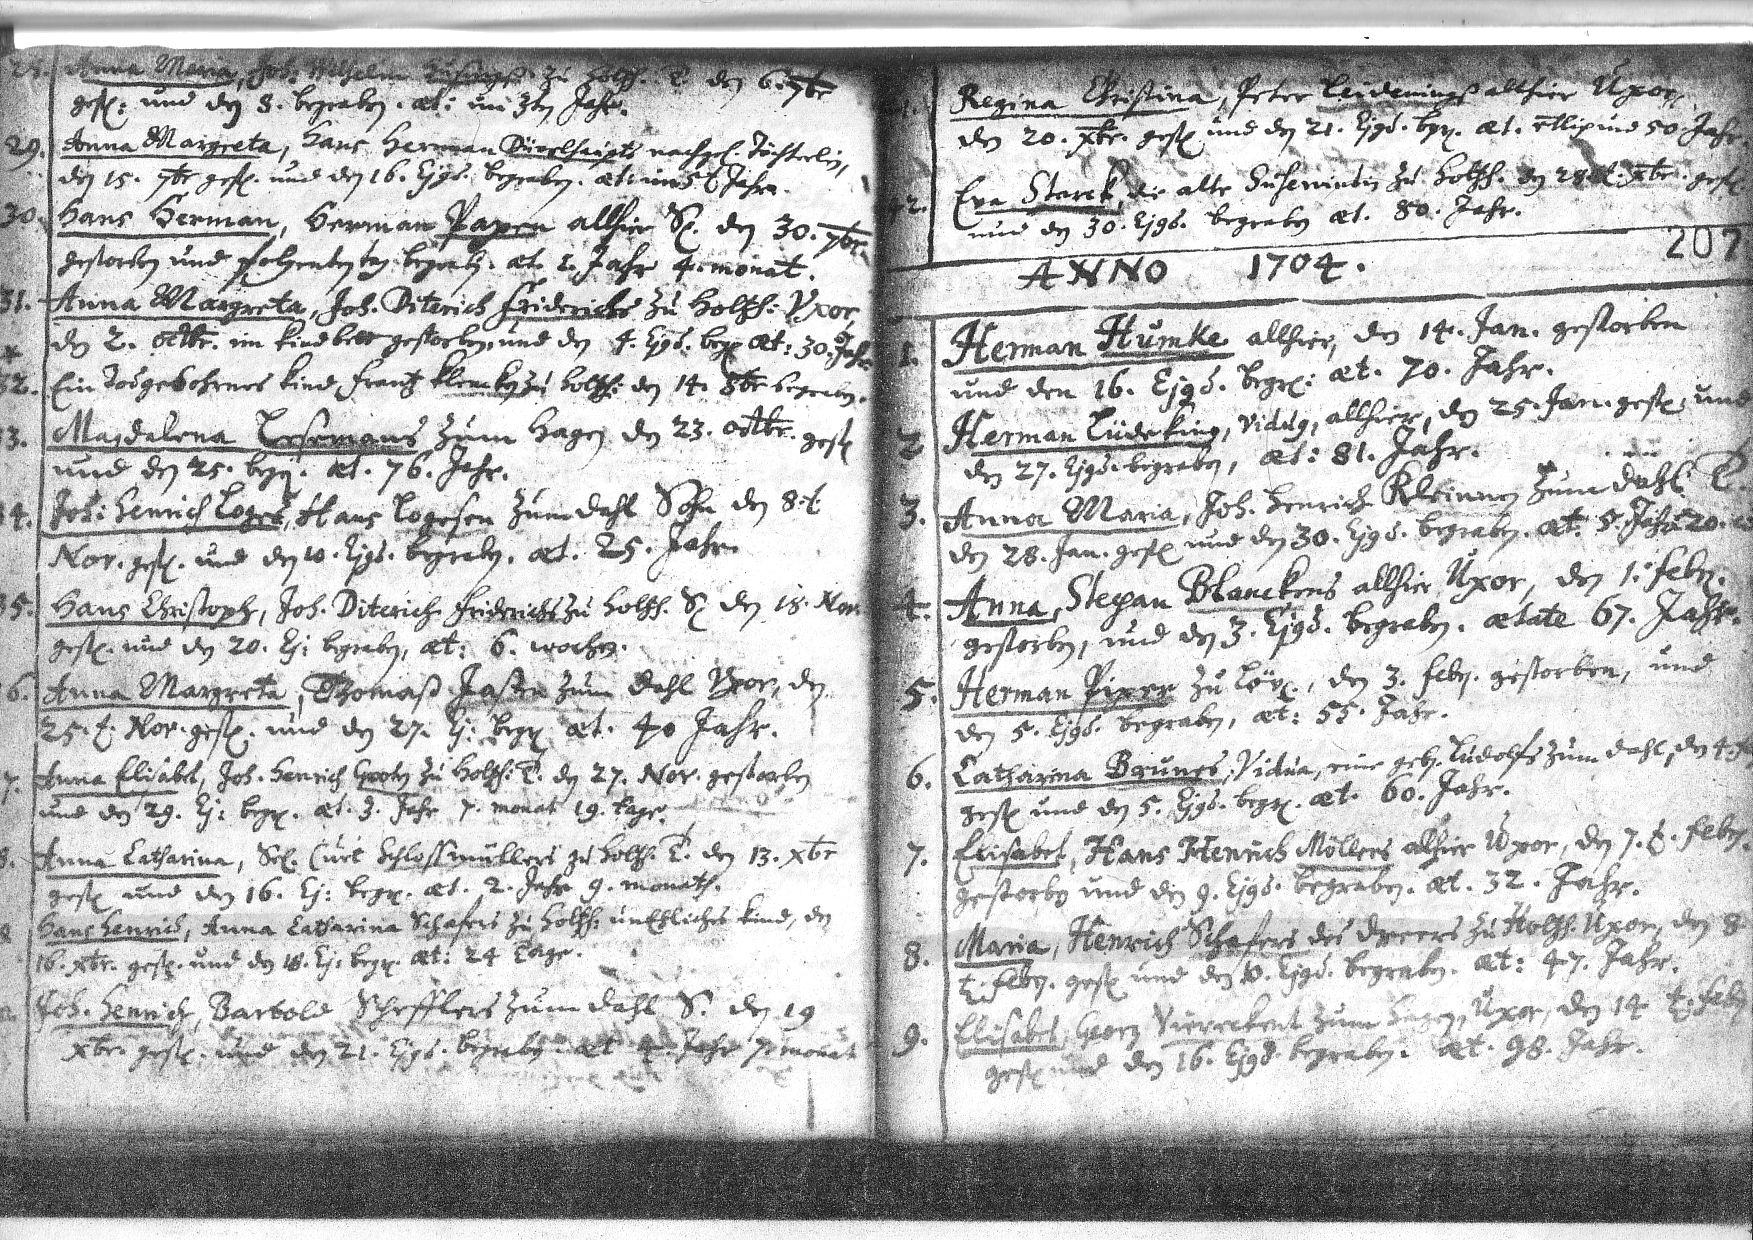 Anna Maria, Joh. Wilhelm zu Holtzh. T. den 6. 7br
gest: und den 8. begraben. æt: im 3ten Jahr.
29. Anna Margreta, Hans Herman Düvelhaupts nachgel. Töchterlin,
den 15. 7br gest. und den 16. Ejgs. begraben. æt: Jahr.
30. Hans Herman, Herman Papen allhier S. den 30. 7br.
gestorben und folgenden tag begrab. æt. 1. Jahr 4. monat.
31. Anna Margreta, Joh. Diterich Friderichs zu Holtzh: Uxor,
den 2. octbr. im kindbett gestorben, und den 4. Ejgs. begr. æt: 30. Jahr.
32. Ein Todgebohrnes kind Frantz zu Holtzh: den 14. 8br begraben.
33. Magdalena Lesemans zum Hagen den 23. octbr. gest
und den 25. begr. æt. 76. Jahr.
34. Joh: Henrich Loges, Hans Logesen zum dahl Sohn den 8. t
Nov. gest. und den 10. Ejgs. begraben. æt. 25. Jahr.
35. Hans Christoph, Joh. Diterich Friderichs zu Holtzh. S. den 18. Nov.
gest. und den 20. Ej: begraben, æt: 6. wochen.
6. Anna Margreta, Thomas zum Dahl Uxor, den
25. t. Nov. gest. und den 27. Ej: begr. æt. 40 Jahr.
7. Anna Elisabet, Joh. Henrich Groten zu Holtzh: T. den 27. Nov. gestorben
und den 29. Ej: begr. æt. 3. Jahr 7. monat 19. tage.
8. Anna Catharina, Sel. Curt Schlossmüllers zu Holtzh. T. den 13. xbr
gest und den 16. Ej: begr. æt. 2. Jahr 9. monath.
Hans Henrich, Anna Catharina Schafers zu Holtzh: unEhliches kind, den
16. xbr. gest. und den 18. Ej: begr. æt: 24 Tage.
Joh. Henrich, Bartold Schefflers zum dahl S. den 19
xbr. gest. und den 21. Ejgs. begraben æt Jahr 7. monat
Regina Christina, Peter allhier Uxor
den 20. xbr. gest und den 21. Ejgs. bgr. æt. etlich und 50. Jahr.
42. Eva Starck, die alte zu Holtzh. den 28. t. xbr. gest
und den 30. Ejgs. begraben æt. 80. Jahr.
207
ANNO 1704.
1. Herman Humke allhier, den 14. Jan. gestorben
und den 16. Ejgs. begr: æt. 70. Jahr.
2. Herman Lüdeking, vidus, allhier, den 25. Jan. gest: und
den 27. Ejgs. begraben, æt: 81. Jahr.
3. Anna Maria, Joh. Henrich Kleinnen zum dahl T.
den 28. Jan. gest und den 30. Ejgs. begraben. æt. 5. Jahr 20.
4. Anna, Stepan Blanckens allhier Uxor, den 1. febr.
gestorben, und den 3. Ejgs. begraben. ætate 67. Jahr.
5. Herman Piper zu , den 3. febr. gestorben, und
den 5. Ejgs. begraben, æt: 55. Jahr.
6. Catharina Brunes, Vidua, eine geb. Ludolfs zum dahl, den 4.
gest und den 5. Ejgs. begr. æt. 60. Jahr.
7. Elisabet, Hans Henrich Möllers allhier Uxor, den 7. t. febr.
gestorben und den 9. Ejgs. begraben. æt. 32. Jahr.
8. Maria, Henrich Schafers des zu Holtzh. Uxor, den 8.
t. febr. gest und den 10. Ejgs. begraben. æt: 47. Jahr.
9. Elisabet, Georg zum Hagen, Uxor, den 14 t. febr
gest und den 16. Ejgs. begraben. æt. 98. Jahr.